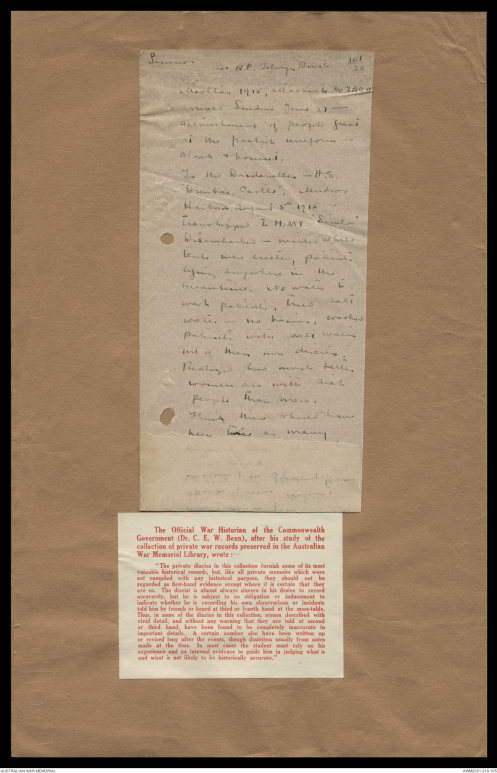 N.F. Selwyn Smith
Mooltan 1915, attached to 3 AGH
arrived London June 27 —
astonishment of people great
at the freakish uniform —
cloak & bonnet.
To the Dardanelles — H.S
Dunbar Castle. Mudros
Harbour August 5th 1915 —
transhipped to H.M.T "Simla"
Disembarked — waited while
tents were erected, patients
lying anywhere in the
meantime. No water to
wash patients, tried salt
water — no basins, washed
patients with salt water
out of their own dixies.
Realized how much better
women are with sick
people than men.
Think there should have
been twice as many
The Official War Historian of the Commonwealth
Government (Dr. C. E. W. Bean), after his study of the
collection of private war records preserved in the Australian
War Memorial Library, wrote :—
"The private diaries in this collection furnish some of its most
valuable historical records, but, like all private memoirs which were
not compiled with any historical purpose, they should not be
regarded as first-hand evidence except where it is certain that they
are so. The diarist is almost always sincere in his desire to record
accurately, but he is subject to no obligation or inducement to
indicate whether he is recording his own observations or incidents
told him by friends or heard at third or fourth hand at the mess-table.
Thus, in some of the diaries in this collection, scenes described with
vivid detail, and without any warning that they are told at second
or third hand, have been found to be completely inaccurate in
important details. A certain number also have been written up
or revised long after the events, though doubtless usually from notes
made at the time. In most cases the student must rely on his
experience and on internal evidence to guide him in judging what is
and what is not likely to be historically accurate."
AUSTRALIAN WAR MEMORIAL